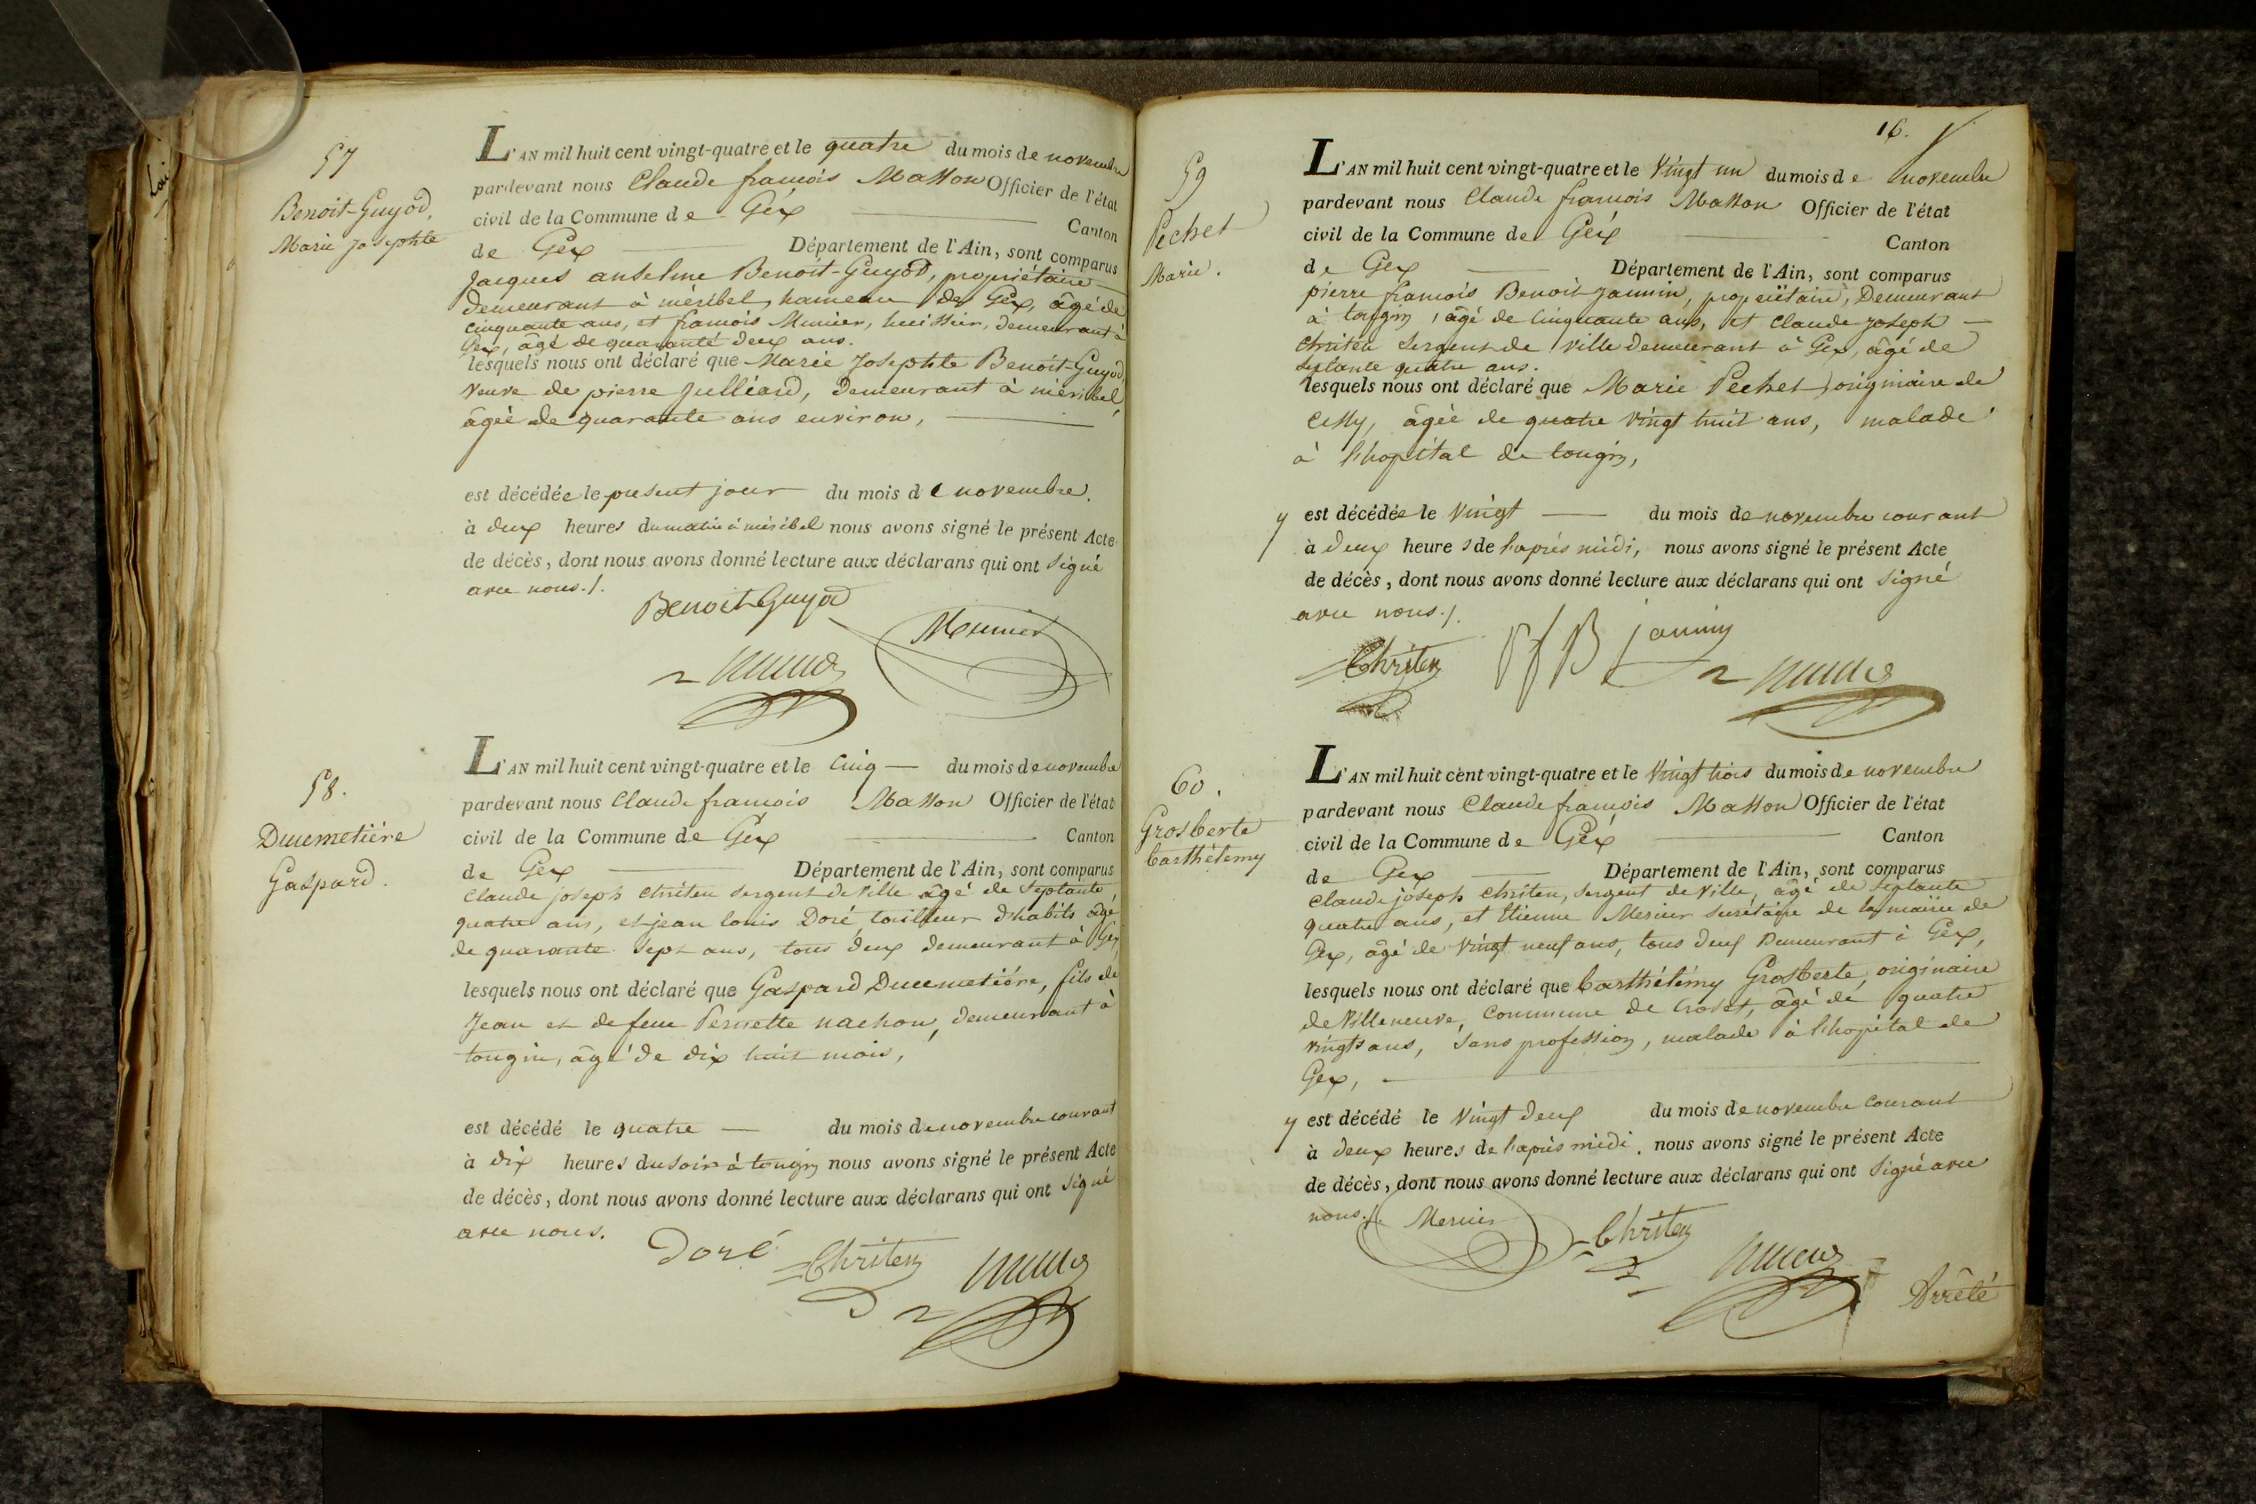 57
Benoit-Guyod,
Marie Josephte
L'AN mil huit cent vingt-quatre et le quatre du mois de novembre
pardevant nous Claude francois Masson Officier de l'état
civil de la Commune de Géx Canton
de Gex Département de l'Ain, sont comparus
Jacques anselme Benoit-Guyod, propriétaire
demeurant à méribel, hameau de Gex, âgé de
cinquante ans, et francois Munier, huissier, demeurant à
Gex, âgé de quarante deux ans.
lesquels nous ont déclaré que Marie Josephte Benoit-Guyod,
veuve de pierre Julliard, demeurant à méribel,
âgée de quarante ans environ,
est décédée le present jour du mois de novembre.
à deux heures du matin à méribel nous avons signé le présent Acte
de décès, dont nous avons donné lecture aux déclarans qui ont signé
avec nous./.
Benoit Guyod
Munier
58.
Ducemetière
Gaspard.
L'AN mil huit cent vingt-quatre et le cinq du mois de novembre
pardevant nous Claude francois Masson Officier de l'état
civil de la Commune de Géx Canton
de Gex Département de l'Ain, sont comparus
Claude joseph Chriten sergent de ville âgé de septante
quatre ans, et jean louis Doré, tailleur d'habits âgé
de quarante sept ans, tous deux demeurant à Gex
lesquels nous ont déclaré que Gaspard Ducemetière, fils de
Jean et de feue Pernette nachon, demeurant à
tougin, âgé de dix huit mois,
est décédé le quatre du mois de novembre courant
à dix heures du soir à tougin nous avons signé le présent Acte
de décès, dont nous avons donné lecture aux déclarans qui ont signé
avec nous.
Doré Chriten
16.
59
Pechet
Marie.
L'AN mil huit cent vingt-quatre et le vingt un du mois de novembre
pardevant nous Claude francois Masson Officier de l'état
civil de la Commune de Géx Canton
de Gex Département de l'Ain, sont comparus
pierre francois Benoit Jannin, propriétaire, Demeurant
à tougin, âgé de Cinquante ans, et Claude Joseph
Chriten Sergent de ville demeurant à Gex, âgé de
septante quatre ans.
lesquels nous ont déclaré que Marie Pechet, originaire de
Cessy, âgée de quatre vingt huit ans, malade
à l'hopital de tougin,
y est décédée le vingt du mois de novembre courant
à deux heures de l'après midi, nous avons signé le présent Acte
de décès, dont nous avons donné lecture aux déclarans qui ont signé
avec nous./.
Chriten P f B jannin
60.
Grosberte
barthélemy
L'AN mil huit cent vingt-quatre et le vingt trois du mois de novembre
pardevant nous Claude francois Masson Officier de l'état
civil de la Commune de Géx Canton
de Gex Département de l'Ain, sont comparus
Claude joseph Chriten, sergent de ville, âgé de septante
quatre ans, et Etienne Mercier secrétaire de la mairie de
Gex, âgé de vingt neuf ans, tous deux Demeurant à Gex,
lesquels nous ont déclaré que barthélémy Grosberte, originaire
de Villeneuve, Commune de Crozet, âgé de quatre
vingts ans, sans profession, malade à l'hopital de
Gex,
y est décédé le vingt deux du mois de novembre courant
à deux heures de l'après midi. nous avons signé le présent Acte
de décès, dont nous avons donné lecture aux déclarans qui ont signé avec
nous./.
Mercier Chriten
Arrêté